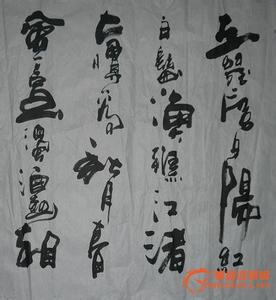 在幾度夕陽紅
白髮漁樵江渚
上慣看秋月春
風一壺濁酒喜相